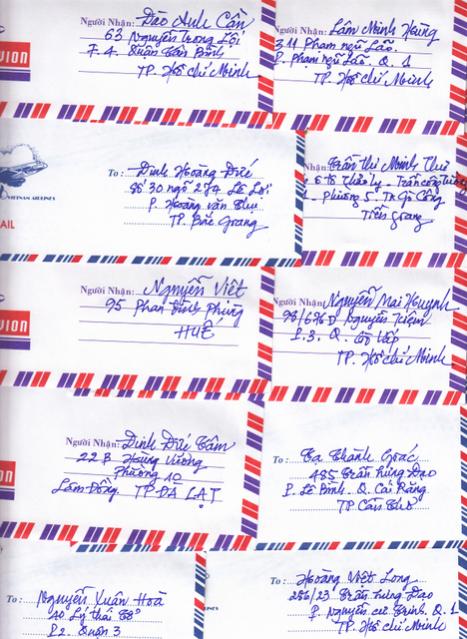 Người Nhận: Đào Anh Cần
63 Nguyễn Trọng Lội
F. 4. Quận Tân Bình
TP. Hồ Chí Minh
VION
Người Nhận: Lâm Minh Hưng
311 Phạm ngũ Lão
P. Phạm ngũ Lão. Q. 1
TP. Hồ Chí Minh
VIETNAM AIRLINES
AIL
To: Đinh Hoàng Đức
Số 30 ngõ 274 Lê Lợi
P. Hoàng Văn Thụ
TP. Bắc Giang
Trần Thị Minh Thư
Phường 5. TX Gò Công
Tiền Giang
VION
Người Nhận: Nguyễn Viết
95 Phan Đình Phùng
HUẾ
Người Nhận: Nguyễn Mai Huỳnh
Nguyễn Kiệm
F.3. Q. Gò Vấp
TP. Hồ Chí Minh
ION
Người Nhận: Đinh Đức Tâm
22B Hùng Vương
Phường 10
Lâm Đồng. TP ĐÀ LẠT
To: Tạ Thành
485 Trần Hưng Đạo
P. Lê Bình. Q. Cái Răng
TP Cần Thơ
To: Nguyễn Xuân Hoà
40 Lý Thái Tổ
P2. Quận 3
To: Hoàng Việt Long
Trần Hưng Đạo
P. Nguyễn cư Trinh. Q. 1
TP. Hồ Chí Minh